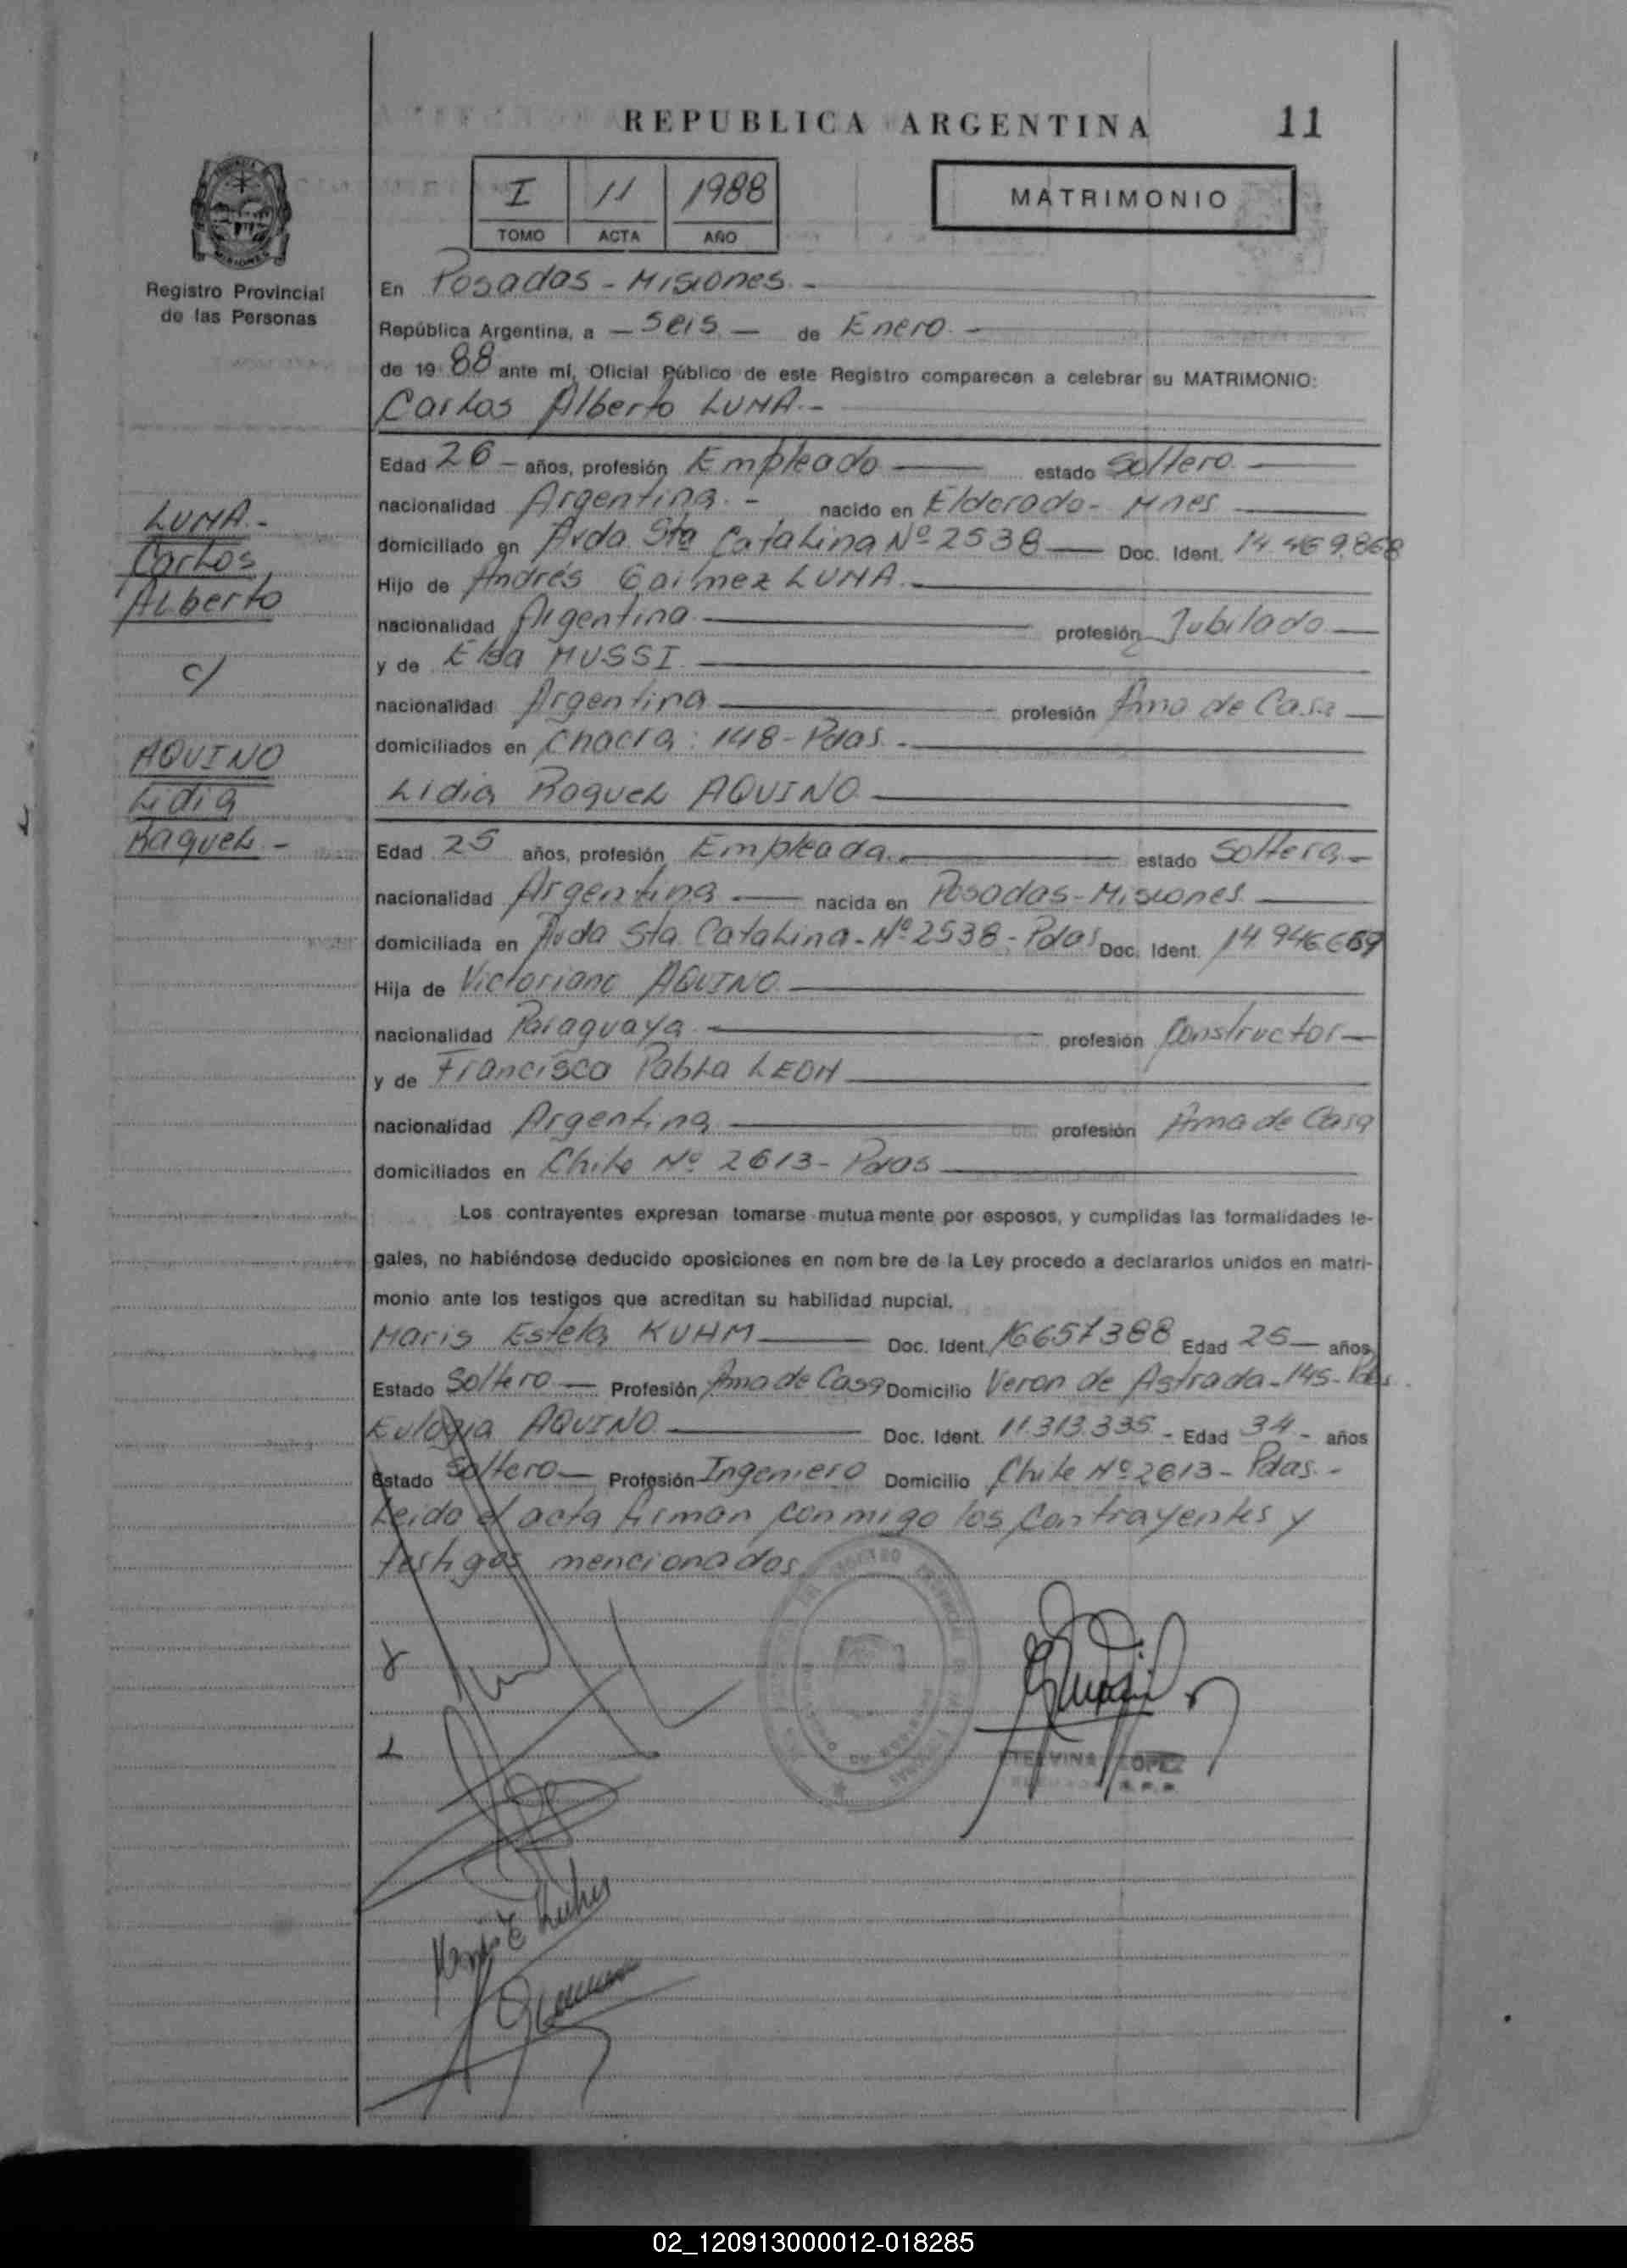 REPUBLICA ARGENTINA
11
I 11 1988
TOMO ACTA AÑO
MATRIMONIO
Registro Provincial
de las Personas
En Posadas - Misiones -
República Argentina, a - Seis - de Enero -
de 1988 ante mí, Oficial Público de este Registro comparecen a celebrar su MATRIMONIO:
Carlos Alberto LUNA.-
Edad 26 - años, profesión Empleado estado Soltero
nacionalidad Argentina - nacido en Eldorado - Mnes
domiciliado en Avda Sta Catalina Nº 2538 Doc. Ident. 14.469.868
Hijo de Andrés LUNA
nacionalidad Argentina profesión Jubilado
y de Elsa MUSSI
nacionalidad Argentina profesión Ama de Casa
domiciliados en Chacra: 148 - Pdas. -
Lidia Raquel AQUINO
LUNA.-
Carlos
Alberto
c/
AQUINO
Lidia
Raquel -
Edad 25 años, profesión Empleada estado Soltera -
nacionalidad Argentina nacida en Posadas - Misiones
domiciliada en Avda Sta Catalina - Nº 2538 - Pdas Doc. Ident. 14.946.669
Hija de Victoriano AQUINO
nacionalidad Paraguaya profesión Constructor
y de Francisca Pabla LEON
nacionalidad Argentina profesión Ama de Casa
domiciliados en Chile Nº 2613 - Pdas
Los contrayentes expresan tomarse mutua mente por esposos, y cumplidas las formalidades le-
gales, no habiéndose deducido oposiciones en nom bre de la Ley procedo a declararlos unidos en matri-
monio ante los testigos que acreditan su habilidad nupcial.
Maris Estela KUHM Doc. Ident. 16657388 Edad 25 años
Estado Soltero Profesión Ama de Casa Domicilio Veron de Astrada - 145 - Pdas.
Eulogia AQUINO Doc. Ident. 11.313.335 - Edad 34 - años
Estado Soltero Profesión Ingeniero Domicilio Chile Nº 2613 - Pdas. -
Leida el acta firman conmigo los contrayentes y
testigos mencionados
LOPEZ
02_120913000012-018285